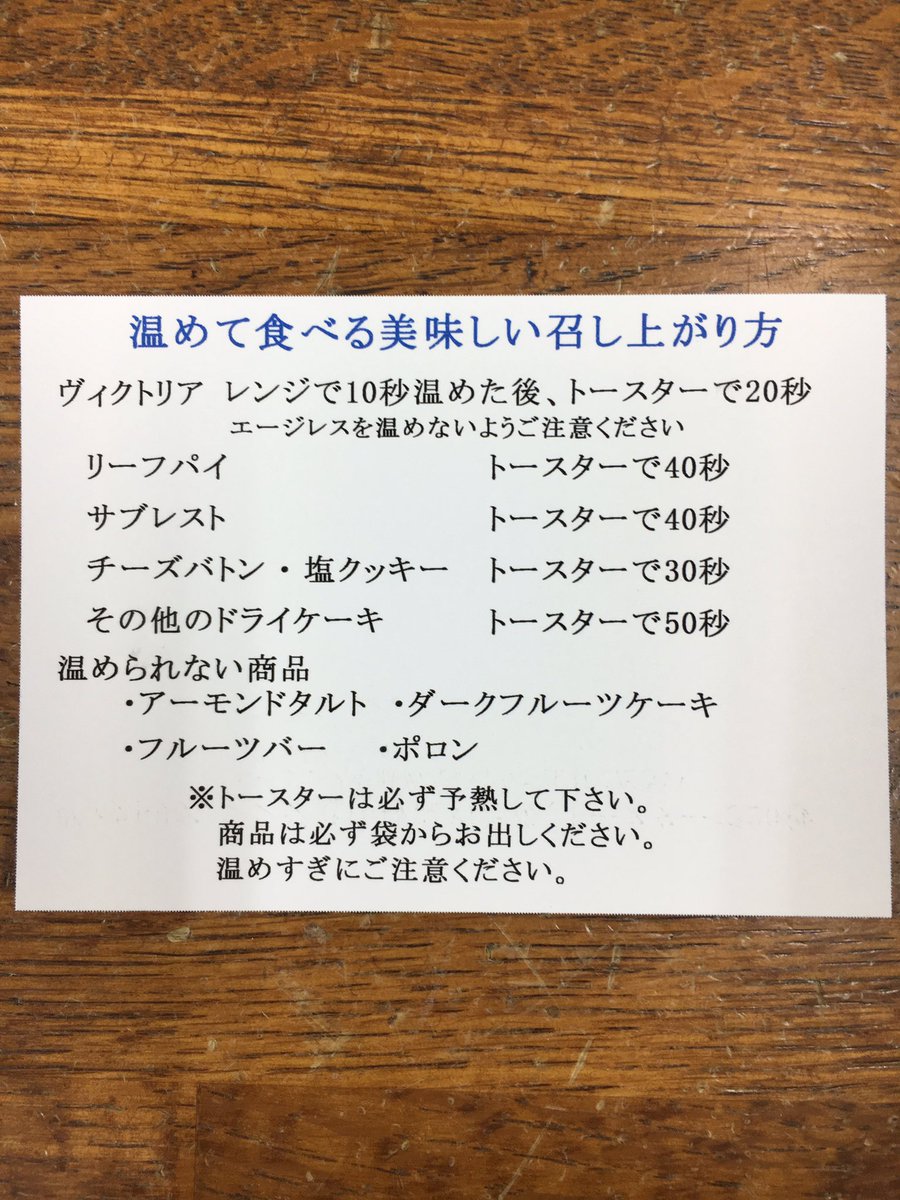 温めて食べる美味しい召し上がり方
ヴィクトリア レンジで10秒温めた後、トースターで20秒
エージレスを温めないようご注意ください
リーフパイ トースターで40秒
サブレスト トースターで40秒
チーズバトン・塩クッキー トースターで30秒
その他のドライケーキ トースターで50秒
温められない商品
・アーモンドタルト ・ダークフルーツケーキ
・フルーツバー ・ポロン
※トースターは必ず予熱して下さい。
商品は必ず袋からお出しください。
温めすぎにご注意ください。